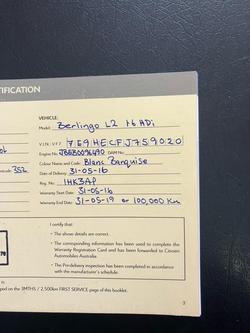 TIFICATION
VEHICLE:
Model: Berlingo L2 1.6 HDi
V.I.N.: VF7 7E9HECFJ759020
Engine No: DAM No:
postcode: 352
Colour Name and Code: Blanc Banquise
Date of Delivery: 31-05-16
Reg. No.: 1HK3AP
Warranty Start Date: 31-05-16
Warranty End Date: 31-05-19 or 100,000 Km
I certify that:
• The above details are correct.
• The corresponding information has been used to complete the
Warranty Registration Card and has been forwarded to Citroen
Automobiles Australia.
• The Pre-delivery inspection has been completed in accordance
with the manufacturer's schedule.
ped on the 3MTHS / 2,500km FIRST SERVICE page of this booklet.
3